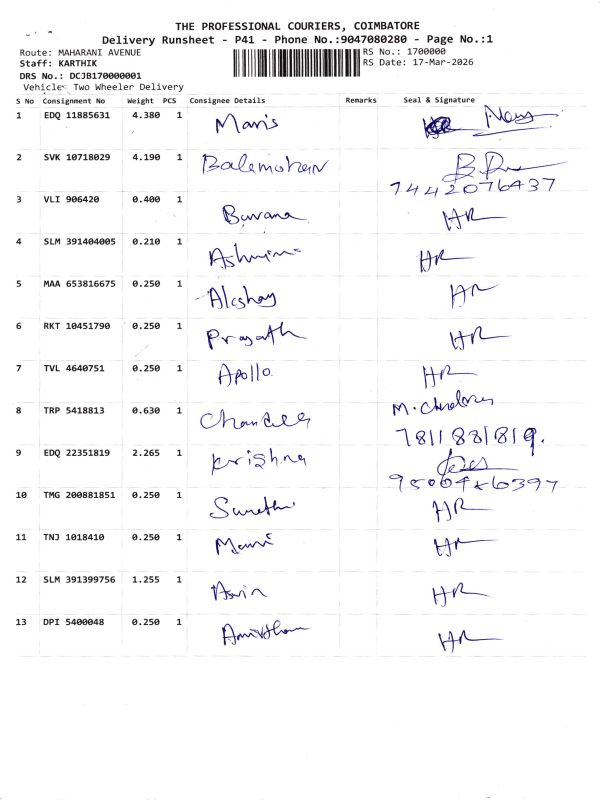 THE PROFESSIONAL COURIERS, COIMBATORE
Delivery Runsheet - P41 - Phone No.:9047080280 - Page No.:1
Route: MAHARANI AVENUE
RS No.: 1700000
Staff: KARTHIK
RS Date: 17-Mar-2026
DRS No.: DCJB170000001
Vehicle: Two Wheeler Delivery
S No Consignment No Weight PCS Consignee Details Remarks Seal & Signature
1 EDQ 11885631 4.380 1 Maris
2 SVK 10718029 4.190 1 Balamohan
7442076437
3 VLI 906420 0.400 1 Bavana HR
4 SLM 391404005 0.210 1 HR
5 MAA 653816675 0.250 1 Akshay HR
6 RKT 10451790 0.250 1 Pragath HR
7 TVL 4640751 0.250 1 Apollo HR
8 TRP 5418813 0.630 1 M.
7811881819.
9 EDQ 22351819 2.265 1 Krishna
10 TMG 200881851 0.250 1 HR
11 TNJ 1018410 0.250 1 HR
12 SLM 391399756 1.255 1 HR
13 DPI 5400048 0.250 1 HR